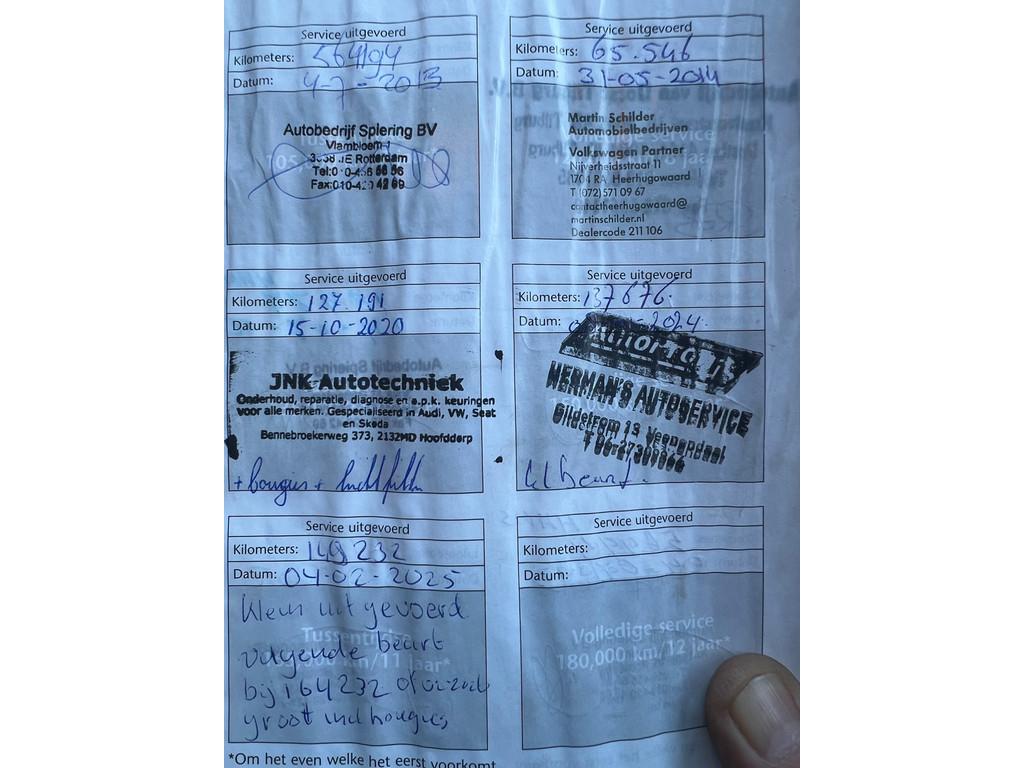 Service uitgevoerd
Kilometers: 564194
Datum: 4-7-2013
Autobedrijf Spiering BV
Vlambloem 1
Rotterdam
Service uitgevoerd
Kilometers: 65.546
Datum: 31-05-2014
Martin Schilder
Automobielbedrijven
Volkswagen Partner
Nijverheidsstraat 11
1704 RA Heerhugowaard
T (072) 571 09 67
contactheerhugowaard@
martinschilder.nl
Dealercode 211 106
Service uitgevoerd
Kilometers: 127.191
Datum: 15-10-2020
JNK Autotechniek
Onderhoud, reparatie, diagnose en a.p.k. keuringen
voor alle merken. Gespecialiseerd in Audi, VW, Seat
en Skoda
Bennebroekerweg 373, 2132MD Hoofddorp
+ bougies + luchtfilter
Service uitgevoerd
Kilometers: 137676.
Datum: -2024.
HERMAN'S AUTOSERVICE
Gildetrom 13 Veenendaal
kl beurt.
Service uitgevoerd
Kilometers: 149232
Datum: 04-02-2025
Klein uitgevoerd
volgende beurt
bij 164232 of
groot incl bougies
Service uitgevoerd
Kilometers:
Datum:
Volledige service
180,000 km/12 jaar*
*Om het even welke het eerst voorkomt